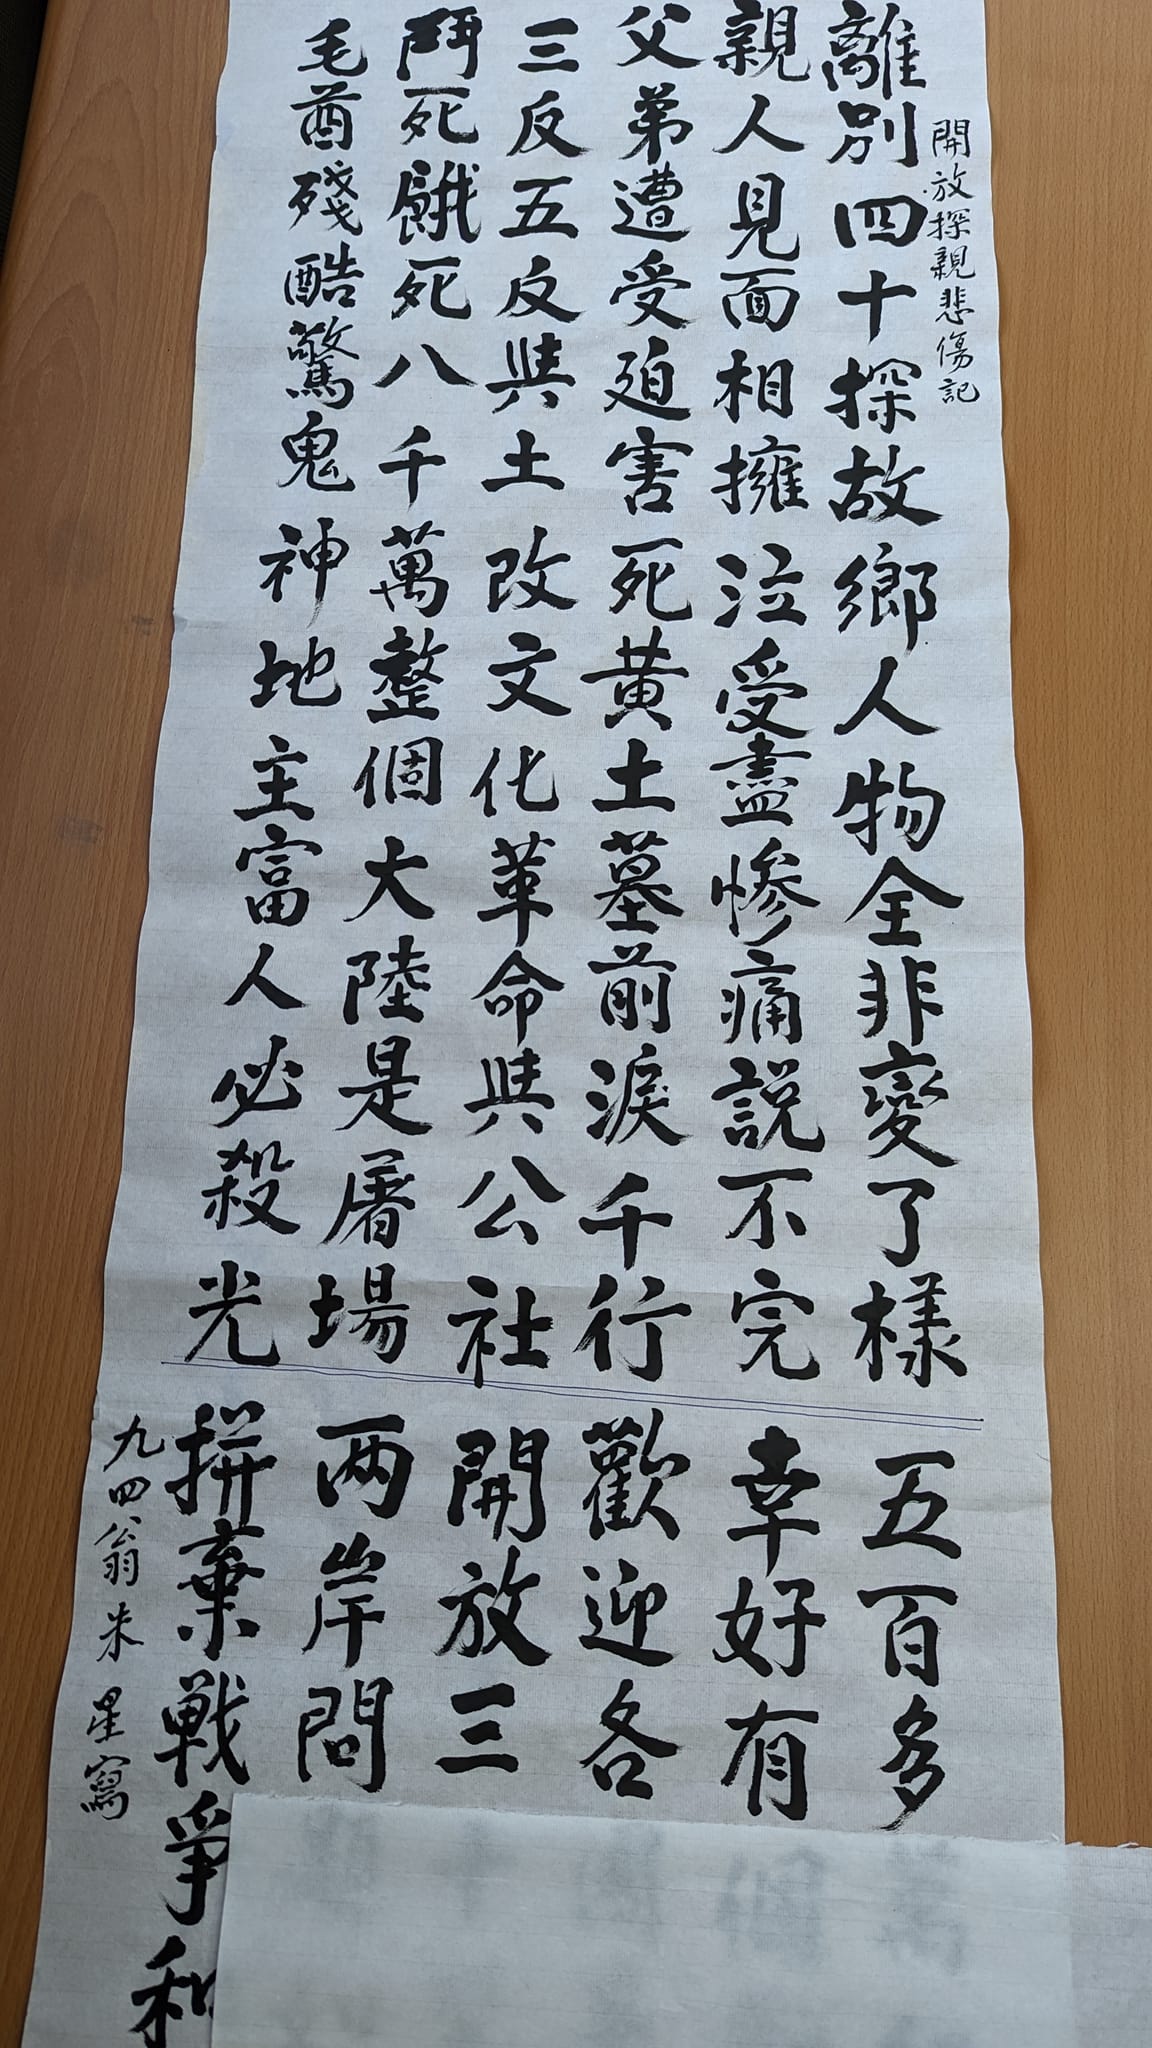 開放探親悲傷記
離別四十探故鄉人物全非變了樣
親人見面相擁泣受盡慘痛說不完
父弟遭受迫害死黃土墓前淚千行
三反五反與土改文化革命與公社
鬥死餓死八千萬整個大陸是屠場
毛酋殘酷驚鬼神地主富人必殺光
五百多
幸好有
歡迎各
開放三
两岸問
拼棄戰爭和
九四翁朱星寫